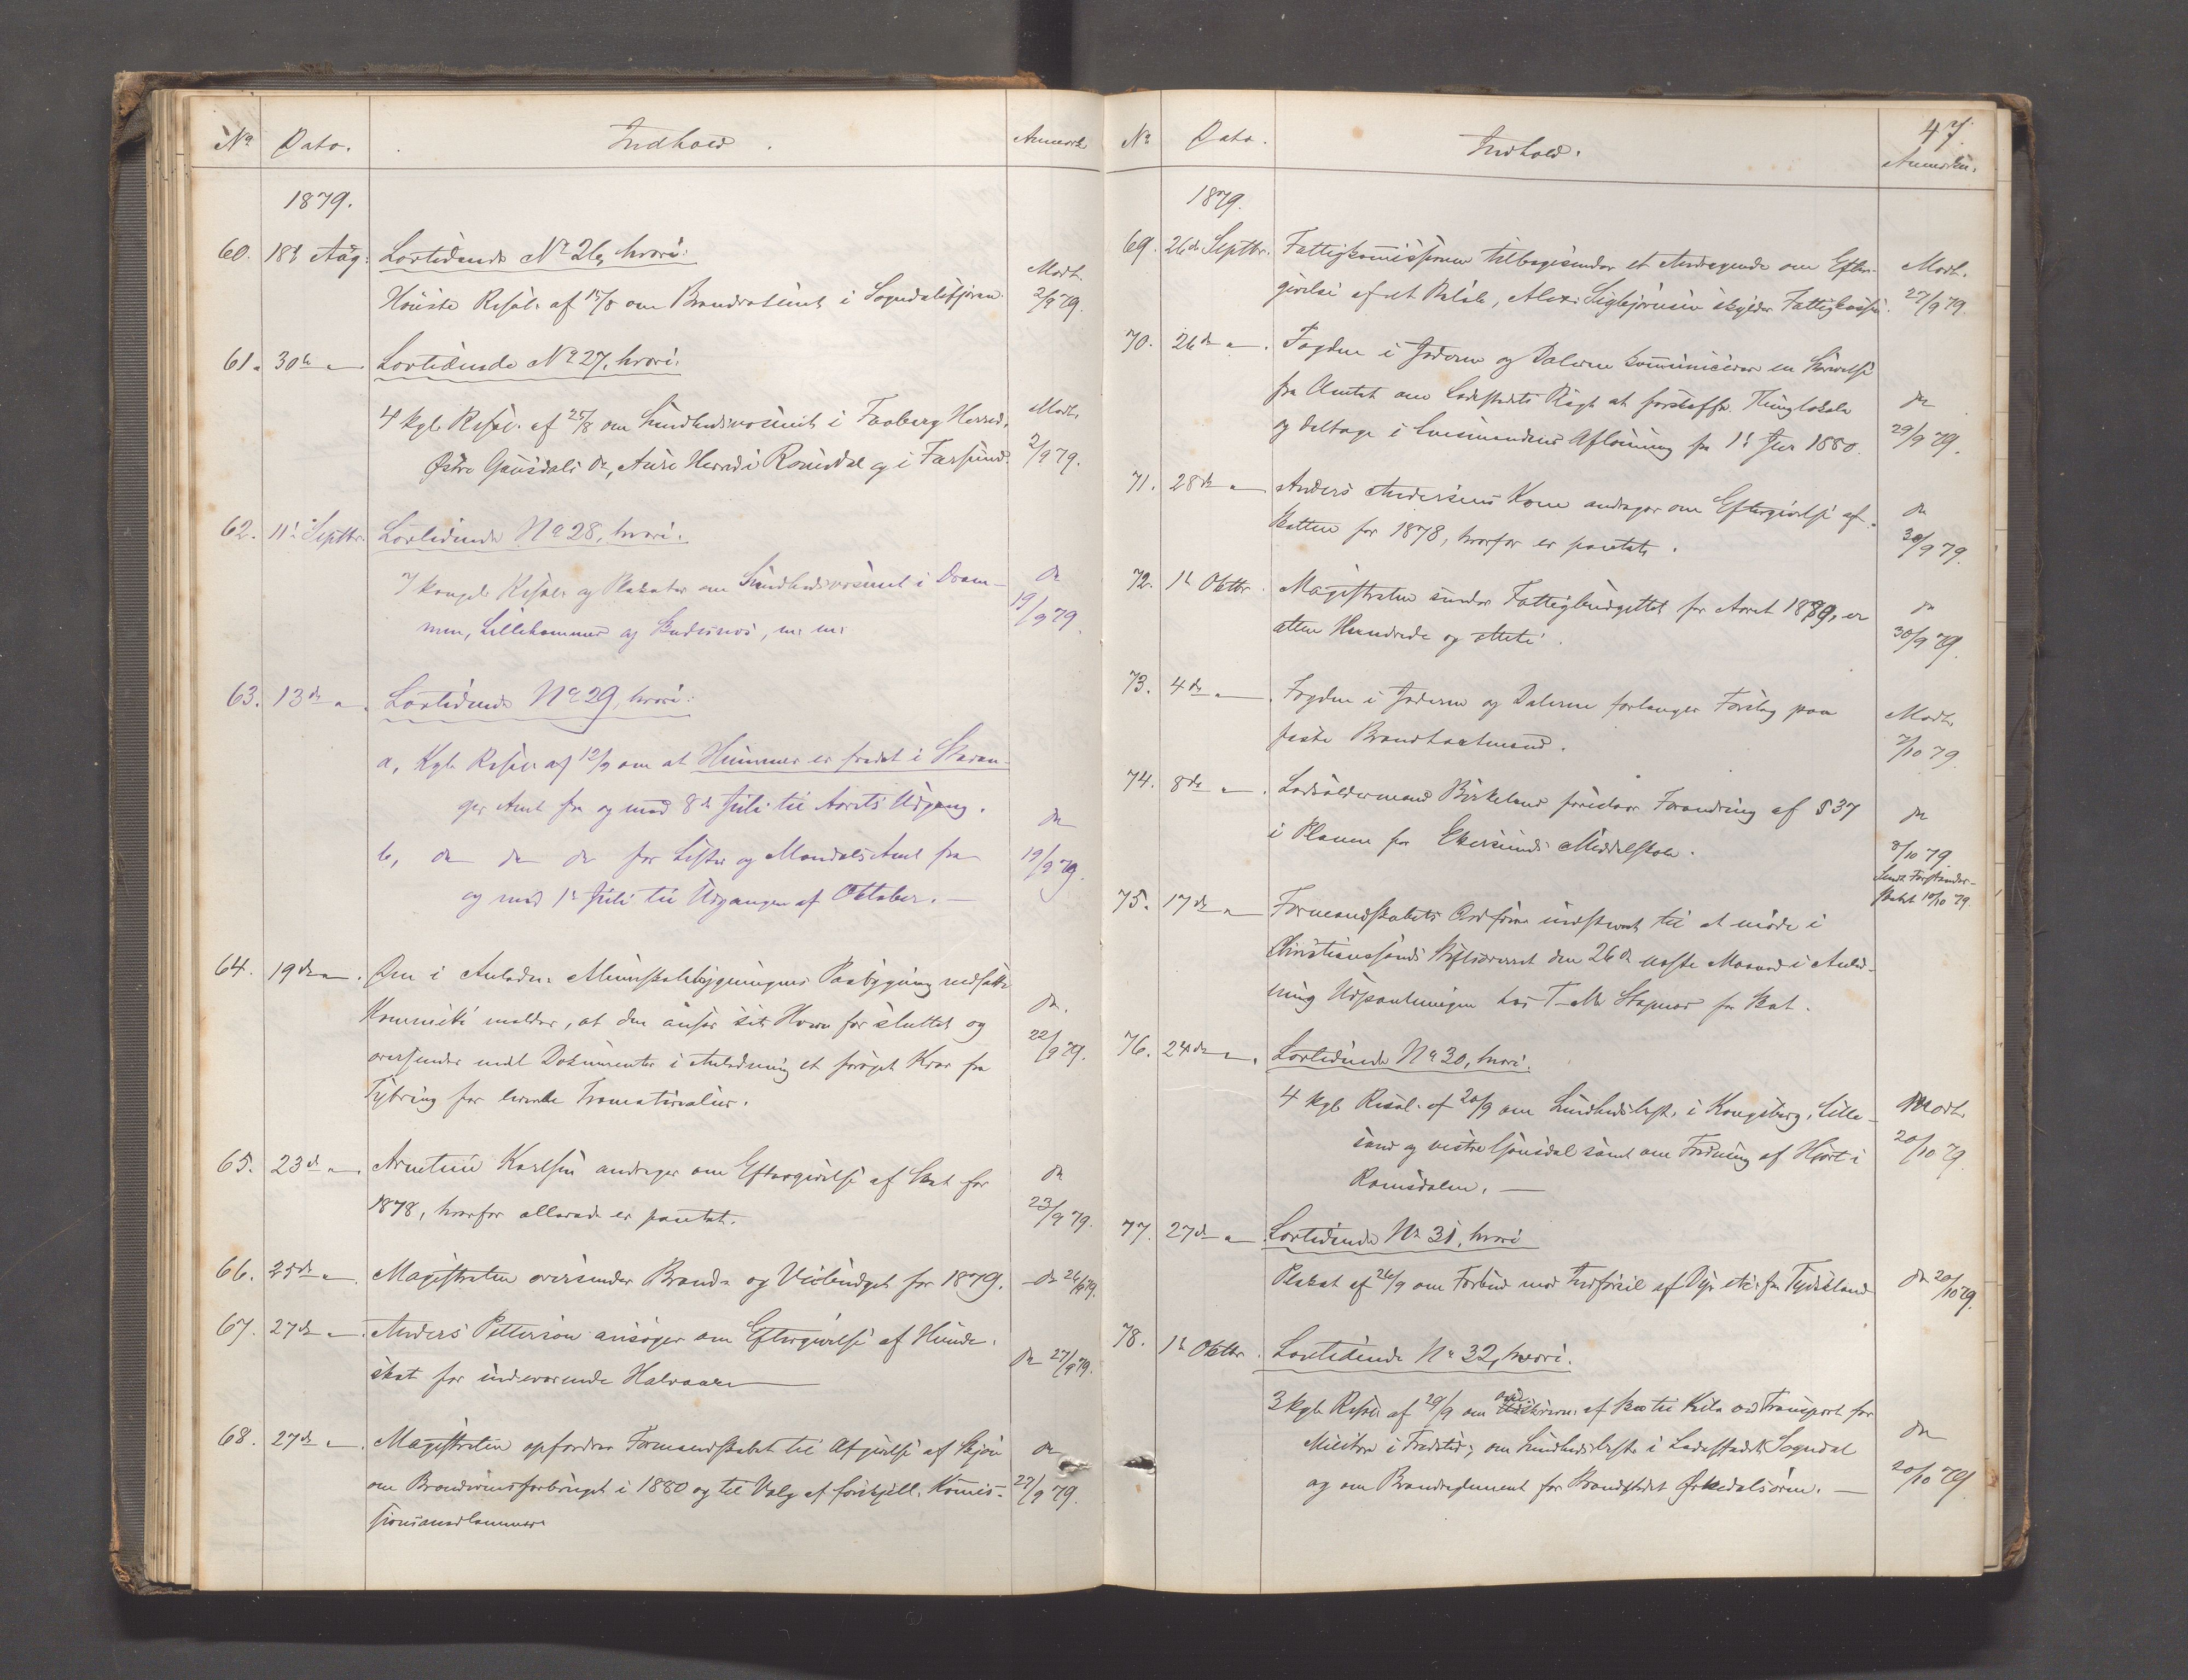 No Dato. Indhold. Anmerk.
1879.
60. 18de Aug: Lovtidende No 26, hvori:
Høieste Resol. af 15/8 om Brandvæsenet i Sogndalsfjæren. Modt. 2/9 79.
61. 30te " Lovtidende No 27, hvori:
4 kgl. Resol. af 25/8 om Sundhedsvæsenet i Faaberg Herred, Modt.
Østre Gausdals do, Aure Herred i Romsdal og i Farsund. 2/9 79.
62. 11te Septbr. Lovtidende No 28, hvori:
7 kongel. Resol. og Plakater om Sundhedsvæsenet i Dram- do
men, Lillehammer og Skudesnæs, m. m. 19/9 79.
63. 13de " Lovtidende No 29, hvori:
a, Kgl. Resol. af 12/9 om at Hummer er fredet i Stavan-
ger Amt fra og med 8de Juli til Aarets Udgang. do
b, do do do for Lister og Mandals Amt fra 19/9 79.
og med 1te Juli til Udgangen af Oktober. —
64. 19de " Den i Anledn. Almueskolebygningens Paabygning nedsatte
Kommité melder, at den anser sit Hverv for sluttet og do.
oversender endel Dokumenter i Anledning et forøget Krav fra 22/9 79.
Tybring for leverede Træmaterialier.
65. 23de " Arnetine Karlsen andrager om Eftergivelse af Skat for do
1878, hvorfor allerede er pantet. 23/9 79.
66. 25de " Magistraten oversender Brand- og Veibudget for 1879. do 26/9 79.
67. 27de " Anders Petterson ansøger om Eftergivelse af Hunde-
skat for indeværende Halvaar do 27/9 79.
68. 27de " Magistraten opfordrer Formandskabet til Afgivelse af Skjøn do
om Brændevinsforbruget i 1880 og til Valg af forskjell. Komis- 27/9 79.
sionsmedlemmer
47.
No Dato. Indhold. Anmerkn.
1879.
69. 26de Septbr. Fattigkomissionen tilbagesender et Andragende om Efter- Modt.
givelse af et Beløb, Alex. Sigbjørnsen skylder Fattigkassen. 27/9 79
70. 26de " Fogden i Jæderen og Dalerne kommunicerer en Skrivelse
fra Amtet om Ladestedets Pligt at forskaffe Thinglokale do
og deltage i Lensmandens Aflønning fra 1te Jan 1880. 29/9 79.
71. 28de " Anders Andersens Kone andrager om Eftergivelse af do
Skatten for 1878, hvorfor er pantet. 30/9 79.
72. 1te Oktbr. Magistraten sender Fattigbudgettet for Aaret 1880, er do
atten Hundrede og otteti. 30/9 79.
73. 4de " Fogden i Jæderen og Dalerne forlanger Forslag paa Modt.
faste Brandtaxtmænd. 7/10 79.
74. 8de " Lodsoldermand Birkeland foreslaar Forandring af § 37 do
i Planen for Ekersunds Middelskole. 8/10 79.
Sendt Forstander-
skabet 10/10 79.
75. 17de " Formandskabets Ordfører indstevnt til at møde i
Christianssands Stiftsoverret den 26de næste Maaned i Anled-
ning Udpantningen hos T. M. Stapnæs for Skat.
76. 24de " Lovtidende No 30, hvori:
4 kgl. Resol. af 20/9 om Sundhedsbest. i Kongsberg, Lille- Modt.
sand og vestre Gausdal samt om Fredning af Hjort i 20/10 79.
Romsdalen. —
77. 27de " Lovtidende No 31, hvori
Plakat af 26/9 om Forbud mod Indførsel af Dyr etc. fra Tydskland do 20/10 79.
78. 1te Oktbr. Lovtidende No 32, hvori:
3 kgl. Resol. af 29/9 om af til ved Transport for
Militære i Fredstid; om Sundhedsbest. i Ladestedet Sogndal do
og om Brandreglement for Strandstedet Ørkedalsøren. — 20/10 79